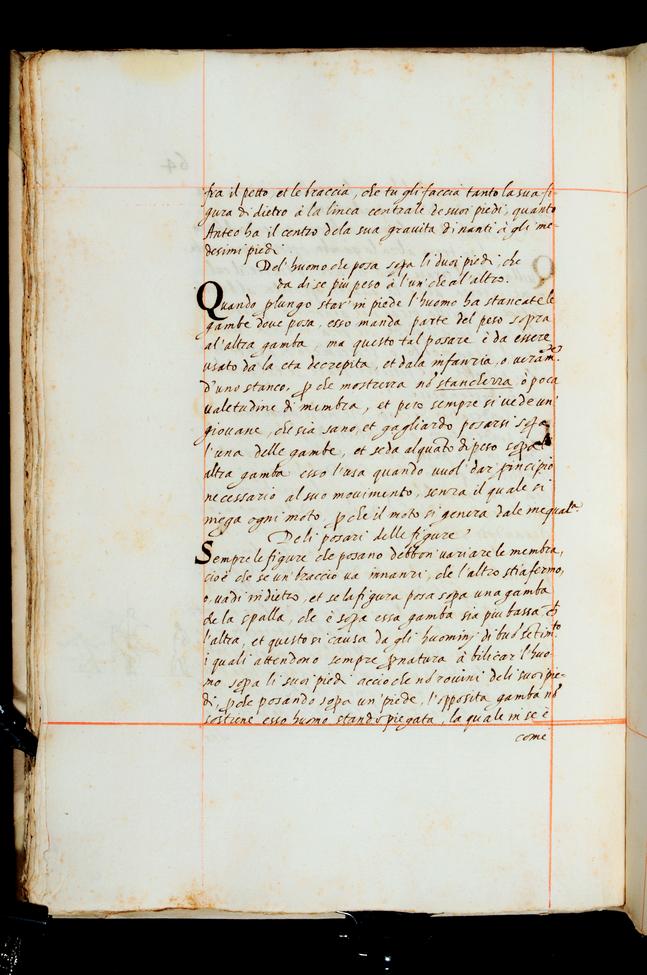 fra il petto, et le braccia, che tu gli faccia tanto la sua fi
gura di dietro à la linea centrale de suoi piedi, quanto
Anteo ha il centro dela sua gravita dinanti à gli me
desimi piedi
Del' huomo che posa sopa li duoi piedi, che
da di se piu peso à l'un' che al'altro.
Quando p lungo star' in piede l'huomo ha stancate le
gambe dove posa, esso manda parte del peso sopra
al'altra gamba, ma questo tal posare è da essere
usato da la eta decrepita, et dala infanzia, o veram.te
d'uno stanco, p che mostrerra nō stanchezza ò poca
valetudine di membra, et pero sempre si vede un'
giovane, che sia sano, et gagliardo posarsi sopa
l'una delle gambe, et se da alquāto di peso sopa l'
altra gamba esso l'usa quando vuol' dar' principio
necessario al suo movimento, senza il quale si
niega ogni moto, p che il moto si genera dale inequali.tà
Deli posari delle figure
Sempre le figure che posano debbon' variare le membra,
cioè che se un' braccio va innanzi, che l'altro stia fermo,
o, vadi in dietro, et se la figura posa sopa una gamba
che la spalla, che è sopa essa gamba sia piu bassa ch
l'altra, et questo si causa da gli huominj di buō sentim.to
i quali attendono sempre p natura à bilicar l'huo
mo sopa li suoi piedi accio che nō rovini deli suoi pie=
di, p che posando sopa un' piede, l'opposita gamba nō
sostiene esso huomo stando piegata, la quale in se è
come